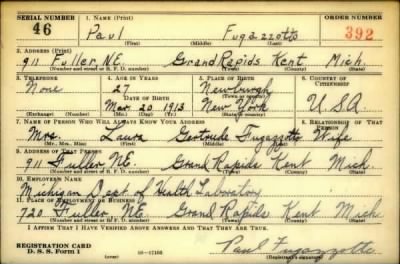 SERIAL NUMBER 1. NAME (Print) ORDER NUMBER
46 Paul Fugazzotto 392
(First) (Middle) (Last)
2. ADDRESS (Print)
911 Fuller N.E. Grand Rapids Kent Mich.
(Number and street or R. F. D. number) (Town) (County) (State)
3. TELEPHONE 4. AGE IN YEARS 5. PLACE OF BIRTH 6. COUNTRY OF CITIZENSHIP
None 27 Newburgh
DATE OF BIRTH
Mar 20 1913 New York USA
(Mo.) (Day) (Yr.)
7. NAME OF PERSON WHO WILL ALWAYS KNOW YOUR ADDRESS 8. RELATIONSHIP OF THAT PERSON
Mrs Laura Gertrude Fugazzotto Wife
(Mr., Mrs., Miss) (First) (Middle) (Last)
9. ADDRESS OF THAT PERSON
911 Fuller, N.E. Grand Rapids Kent Mich
(Number and street or R. F. D. number) (Town) (County) (State)
10. EMPLOYER'S NAME
Michigan Dept. of Health Laboratory
11. PLACE OF EMPLOYMENT OR BUSINESS
720 Fuller N.E. Grand Rapids Kent Mich
(Number and street or R. F. D. number) (Town) (County) (State)
I AFFIRM THAT I HAVE VERIFIED ABOVE ANSWERS AND THAT THEY ARE TRUE.
REGISTRATION CARD
D. S. S. Form 1 (over) Paul Fugazzotto
(Registrant's signature)